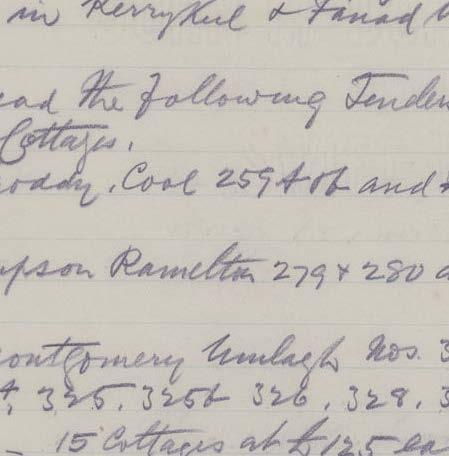 in Kerrykeel & Fanad
ead the following Tender
Cottages.
oody, Cool 259A ob and
pson Ramelton 279 & 280
ontgomery Umlagh Nos. 3
325, 325b 326, 328, 3
15 Cottages at £125 ea